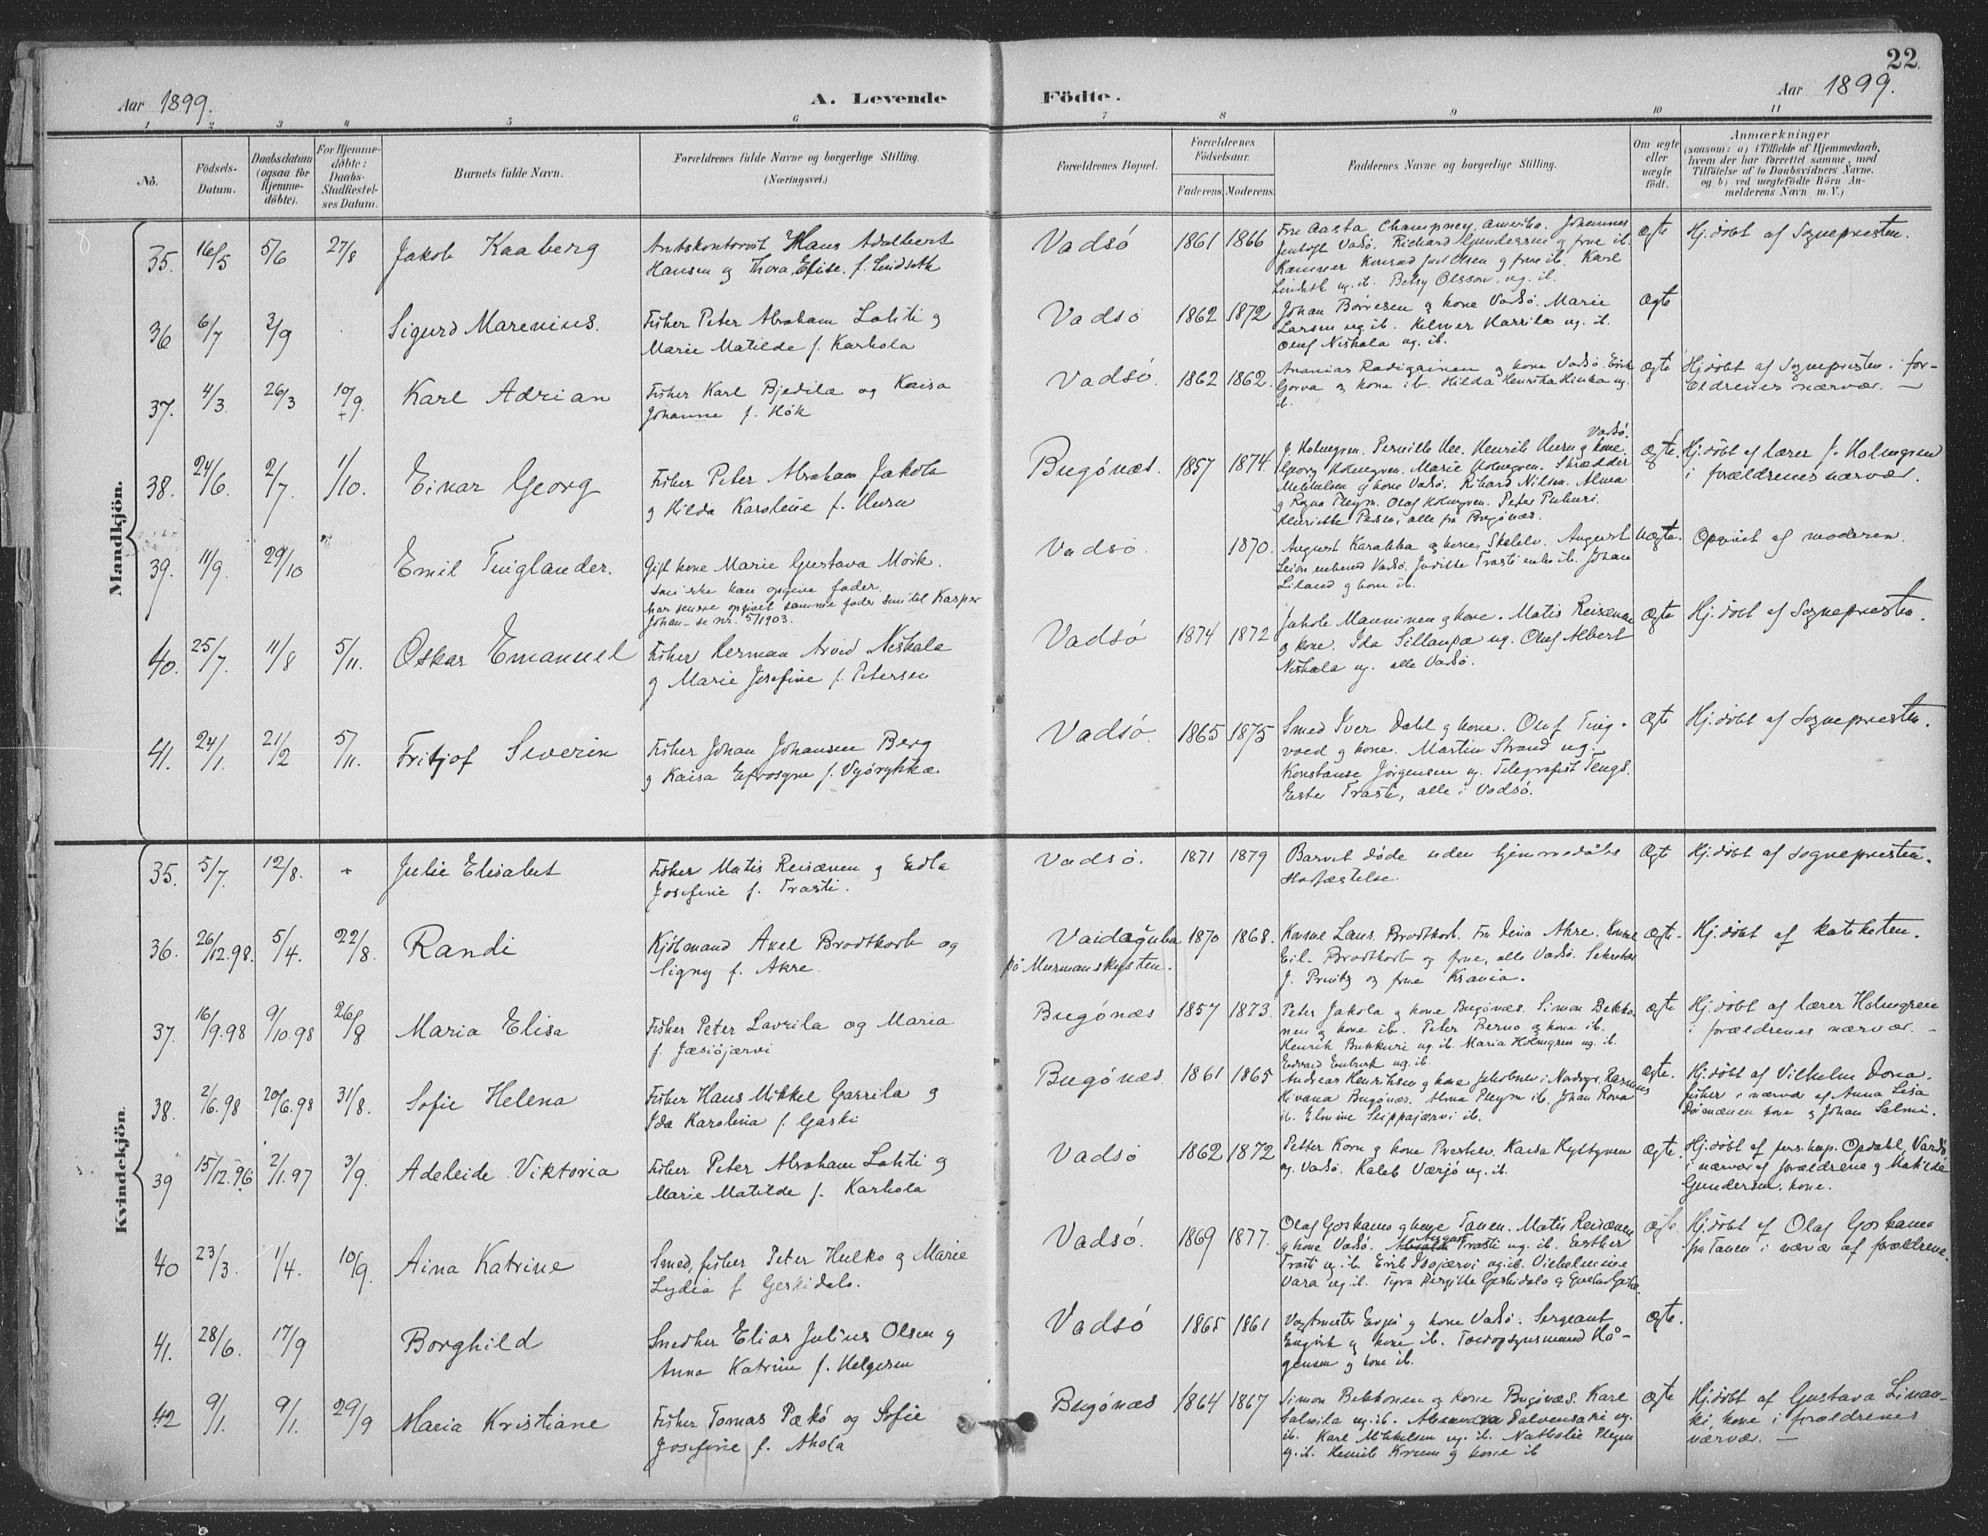 22
Aar 1899.
A. Levende Födte.
Aar 1899.
1 2 3 4 5 6 7 8 9 10 11
No.
Födsels-
Datum.
Daabsdatum
(ogsaa for
Hjemme-
döbte).
For Hjemme-
döbte:
Daabs-
Stadfæstel-
ses Datum.
Barnets fulde Navn.
Forældrenes fulde Navne og borgerlige Stilling.
(Næringsvei.)
Forældrenes Bopæl.
Forældrenes
Födselsaar.
Faderens. Moderens.
Faddernes Navne og borgerlige Stilling.
Om ægte
eller
uægte
födt.
Anmærkninger
(saasom: a) i Tilfælde af Hjemmedaab,
hvem der har forrettet samme, med
Tilföielse af to Daabsvidners Navne,
og b) ved uægtefödte Börn An-
melderens Navn m. V.)
Mandkjön.
35. 16/5 5/6 27/8 Jakob Kaaberg
Amtskontorist Hans Adalbert
Hansen og Thora Elise f. Lindseth
Vadsö 1861 1866
Fru Aasta Champney, Amerika. Johannes
Vadsö. Richard Gundersen og frue ib.
Kæmner Konrad Olsen og frue ib. Karl
Lindseth ug. ib. Betsy Olsson, ug. ib.
ægte Hj.döbt af Sognepresten.
36 6/7 3/9 Sigurd Marenius.
Fisker Peter Abraham Lahti og
Marie Matilde f. Karhola
Vadsö 1862 1872
Johan Börresen og kone Vadsö. Marie
Larsen ug. ib. Hilmer Harrila ug. ib.
Oluf Niskala ug. ib.
ægte
37. 4/3. 26/3 10/9. Karl Adrian
Fisker Karl Bjedila og Kaisa
Johanne f. Hök
Vadsö. 1862 1862.
Ananias Radigainen og kone Vadsö. Erik
Gorva og kone ib. Hilda Henrika Hinka ug.
ib.
ægte Hj.döbt af Sognepresten i for-
ældrenes nærvær. —
38. 24/6. 2/7 1/10. Einar Georg
Fisker Peter Abraham Jakola
og Hilda Karoline f. Hurn
Bugönæs. 1857 1874.
Vadsö.
J. Holmgren. Pernille Uee. Henrik Hurn og kone.
Georg Holmgren. Marie Holmgren. Skrædder
Mikkelsen og kone Vadsö. Rikard Nilsen. Alma
og Ragna Pleym. Olaf Holmgren. Peter Puhuri.
Henriette Pedsen, alle fra Bugönæs.
ægte. Hj.döbt af lærer J. Holmgren
i forældrenes nærvær.
39. 11/9. 29/10 Emil Tuiglander.
Gift kone Marie Gustava Mörk.
som ikke kan opgive fader.
har senere opgivet samme fader som til Kasper
Johan – se nr. 5/1903.
Vadsö. 1870.
August Karakka og kone Skalelv. August
Leinonen Vadsö. Judithe Trasti enke ib. Johan
Liland og kone ib.
uægte. Opgivet af moderen.
40. 25/7. 11/8 5/11. Oskar Emanuel
Fisker Herman Arvid Niskala
og Marie Josefine f. Petersen
Vadsö 1874 1872
Jakob Manninen og kone. Matis Reisænen
og kone. Ida Sillanpæ ug. Oluf Albert
Niskala ug. alle Vadsö.
ægte Hj. döbt af Sognepresten.
41. 24/1. 21/2 5/11. Fritjof Severin
Fisker Johan Johansen Berg
og Kaisa Efrosyne f. Vyörykkæ
Vadsö 1865 1875
Smed Iver Dahl og kone. Oluf Ting-
voed og kone. Martin Strand ug.
Konstanse Jörgensen ug. Telegrafist Tengs.
Ester Trasti, alle i Vadsö.
ægte Hj.döbt af Sognepresten.
Kvindekjön.
35. 5/7. 12/8. Julie Elisabet
Fisker Matis Reisænen og Edla
Josefine f. Trasti.
Vadsö. 1871 1879
Barnet döde uden hjemmedöbs
stadfæstelse.
ægte Hj.döbt af Sognepresten.
36. 26/12.98. 5/4. 22/8. Randi
Kjöbmand Axel Brodtkorb og
Signy f. Akre.
Vaidaguba
på Murmanskysten. 1870 1868.
Konsul Laur. Brodtkorb. Fru Dina Akre. Konsul
Eil. Brodtkorb og frue, alle Vadsö. Sekretær
J. Prebitz og frue Krania.
ægte. Hj.döbt af kateketen.
37. 16/9.98 9/10.98 26/8 Maria Elisa
Fisker Peter Lavrila og Maria
f. Jæsiöjærvi
Bugönæs 1857 1873.
Peter Jakola og kone Bugönæs. Simon Bekko-
nen og kone ib. Peter Perno og kone ib.
Henrik Bukkuri ug. ib. Maria Holmgren ug. ib.
Edvard Emberk ug. ib.
ægte Hj.döbt af lærer Holmgren
i forældrenes nærvær. —
38. 2/6.98 20/6.98 31/8. Sofie Helena
Fisker Hans Mikkel Garrila og
Ida Karolina f. Gaski
Bugönæs. 1861 1865
Andreas Henriksen og kone Jakobselv i Nordvgr. Rasmus
Kivana Bugönæs. Alma Pleym ib. Johan Rova
ib. Elmine Seippajærvi ib.
ægte. Hj.döbt af Vilhelm Dona.
fisker i nærvær af Anna Lisa
Döimænen kone og Johan Salmi.
39 15/12.96 2/1.97 3/9. Adeleide Viktoria
Fisker Peter Abraham Lahti og
Marie Matilde f. Karhola
Vadsö 1862 1872
Petter Korn og kone Præstelv. Kaisa Kyttynen
ug. Vadsö. Kaleb Værjö ug. ib.
ægte. Hj.döbt af pers.kap. Opdahl, Vardö
i nærvær af forældrene og Matilde
Gundersen, kone.
40 23/3. 1/4. 10/9. Aina Katrine
Smed, fisker Peter Hulko og Marie
Lydia f. Geskidalo.
Vadsö. 1869 1877.
Olaf Goskamo og kone Tanen. Matis Reisænen
og kone Vadsö. August Trasti ug. ib. Esther
Trasti ug. ib. Erik Isojærvi ug. ib. Vilhelmine
Vara ug. ib. Tyra Birgitte Geskidalo og
ægte Hj.döbt af Olaf Goskamo
fra Tanen i nærvær af forældrene.
41. 28/6. 17/9 Borghild
Smedker Elias Julius Olsen og
Anna Katrine f. Helgesen
Vadsö 1865 1861
Vagtmester Evjen og kone Vadsö. Sergeant
Engvik og kone ib. Toldopsynsmand Hå-
gensen og kone ib.
ægte.
42 9/1. 9/1. 29/9 Maria Kristiane
Fisker Tomas Pækö og Sofie
Josefine f. Ahola
Bugönæs 1864 1867
Simon Bekkonen og kone Bugönæs. Karl
Salvila ug. ib. Alexandra Salvensaki ug.
ib. Karl Mikkelsen ug. ib. Nathalie Pleym
ug. ib. Henrik Krum og kone ib
ægte Hj.döbt af Gustava Linan-
ki kone i forældrenes
nærvær. —